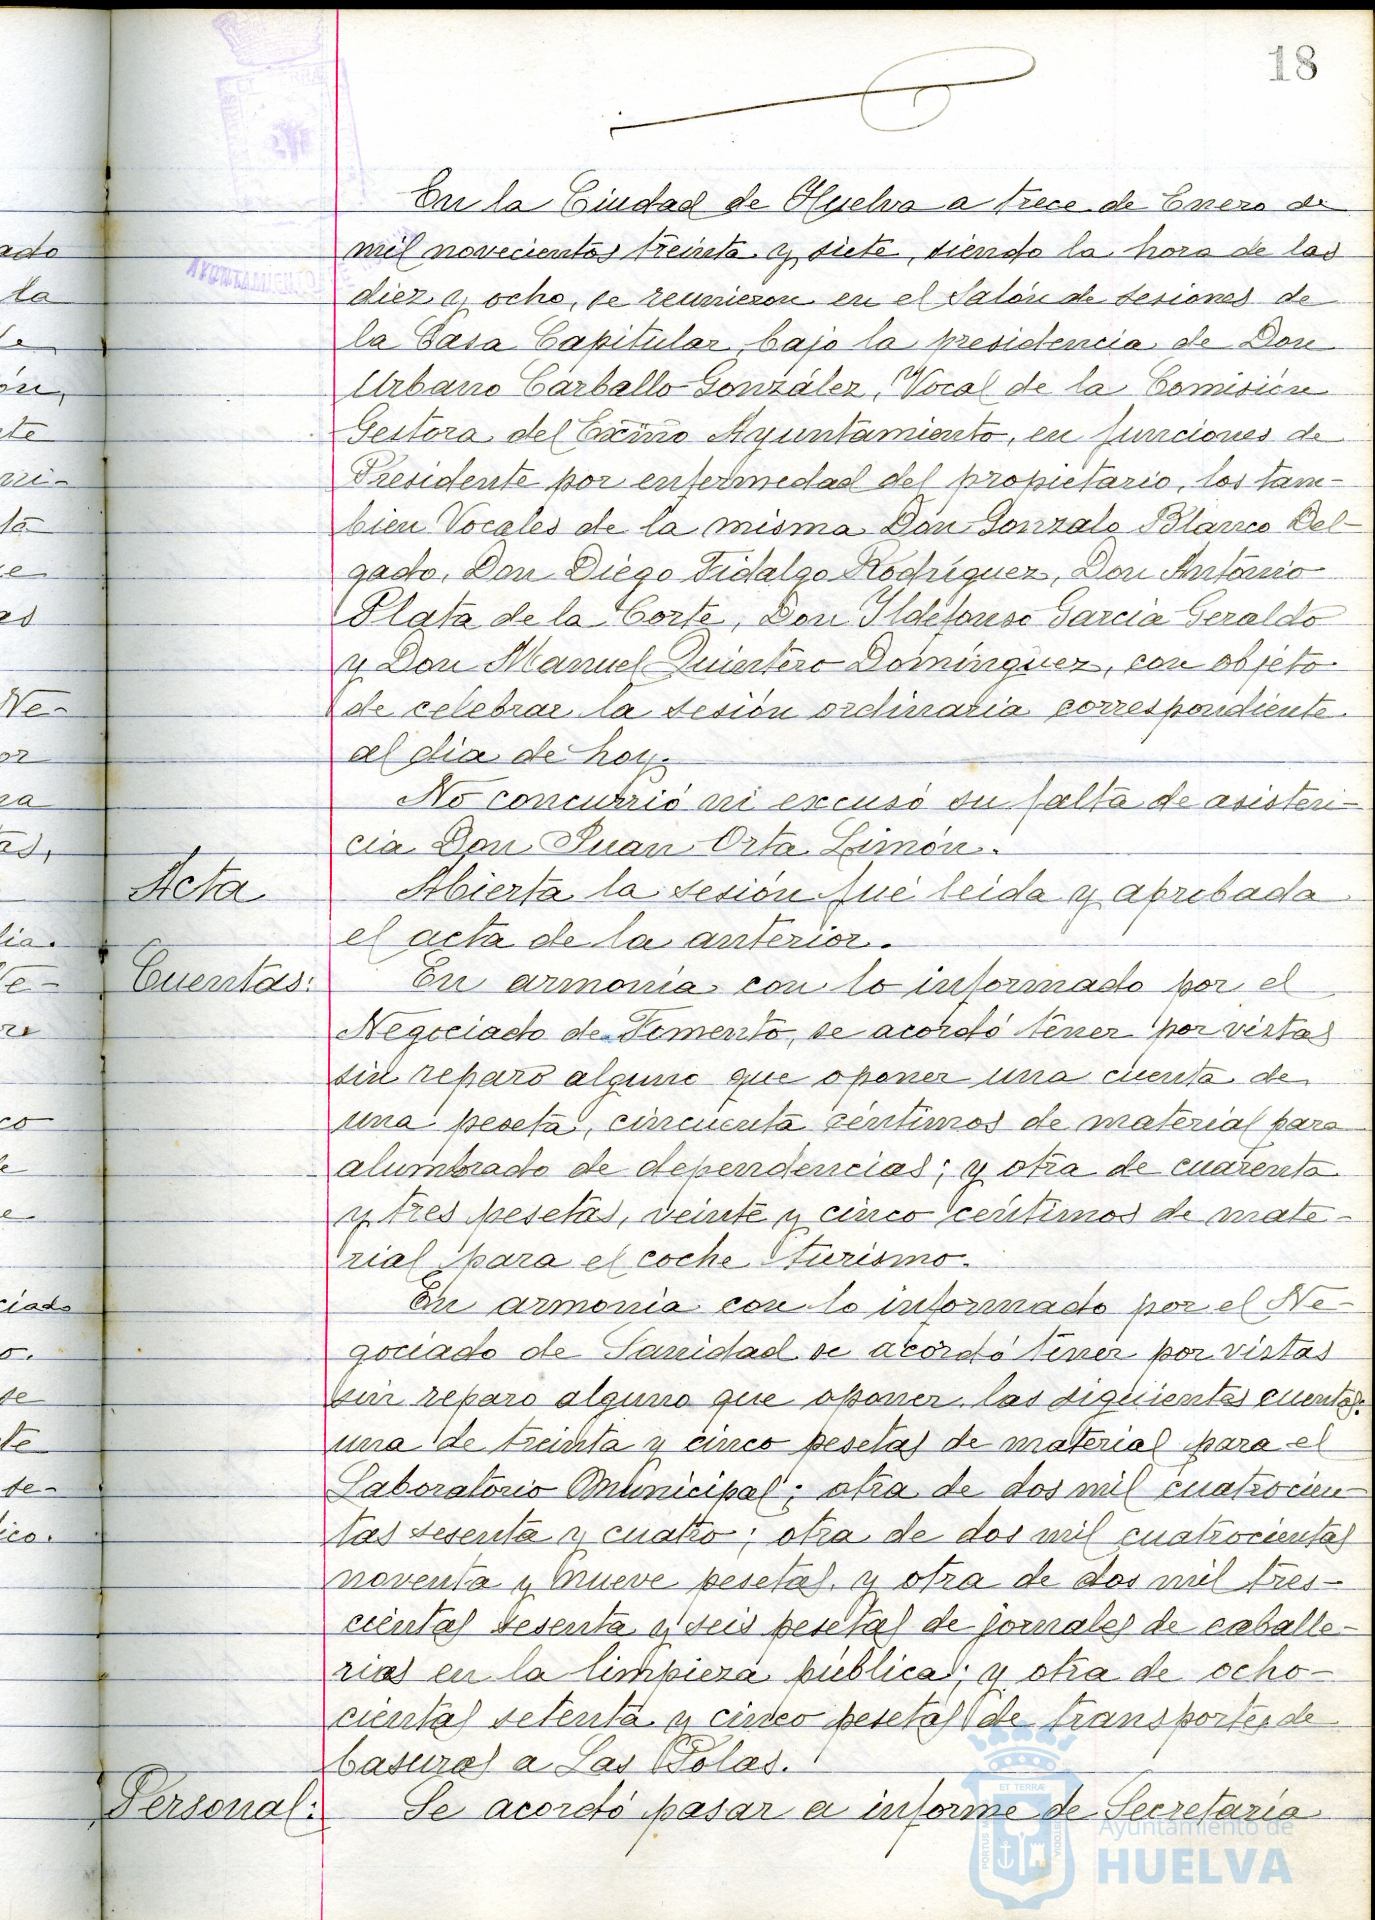 18
En la Ciudad de Huelva a trece de Enero de
mil novecientos treinta y siete, siendo la hora de las
diez y ocho, se reunieron en el Salón de sesiones de
la Casa Capitular, bajo la presidencia de Don
Urbano Carballo González, Vocal de la Comisión
Gestora del Excmo Ayuntamiento, en funciones de
Presidente por enfermedad del propietario, los tam-
bien Vocales de la misma Don Gonzalo Blanco Del-
gado, Don Diego Fidalgo Rodríguez, Don Antonio
Plata de la Corte, Don Ildefonso García Geraldo
y Don Manuel Quintero Domínguez, con objeto
de celebrar la sesión ordinaria correspondiente
al dia de hoy.
No concurrió ni excusó su falta de asisten-
cia Don Juan Orta Limón.
Acta Abierta la sesión fué leida y aprobada
el acta de la anterior.
Cuentas: En armonía con lo informado por el
Negociado de Fomento, se acordó tener por vistas
sin reparo alguno que oponer una cuenta de
una peseta, cincuenta céntimos de material para
alumbrado de dependencias; y otra de cuarenta
y tres pesetas, veinte y cinco céntimos de mate-
rial para el coche turismo.
En armonia con lo informado por el Ne-
gociado de Sanidad se acordó tener por vistas
sin reparo alguno que oponer las siguientes cuentas:
una de treinta y cinco pesetas de material para el
Laboratorio Municipal; otra de dos mil cuatrocien-
tas sesenta y cuatro; otra de dos mil cuatrocientas
noventa y nueve pesetas, y otra de dos mil tres-
cientas sesenta y seis pesetas de jornales de caballe-
rias en la limpieza pública; y otra de ocho-
cientas setenta y cinco pesetas de transportes de
basuras a Las Polas.
Personal: Se acordó pasar a informe de Secretaría
AYUNTAMIENTO
ET TERRÆ
PORTUS
CUSTODIA
Ayuntamiento de
HUELVA